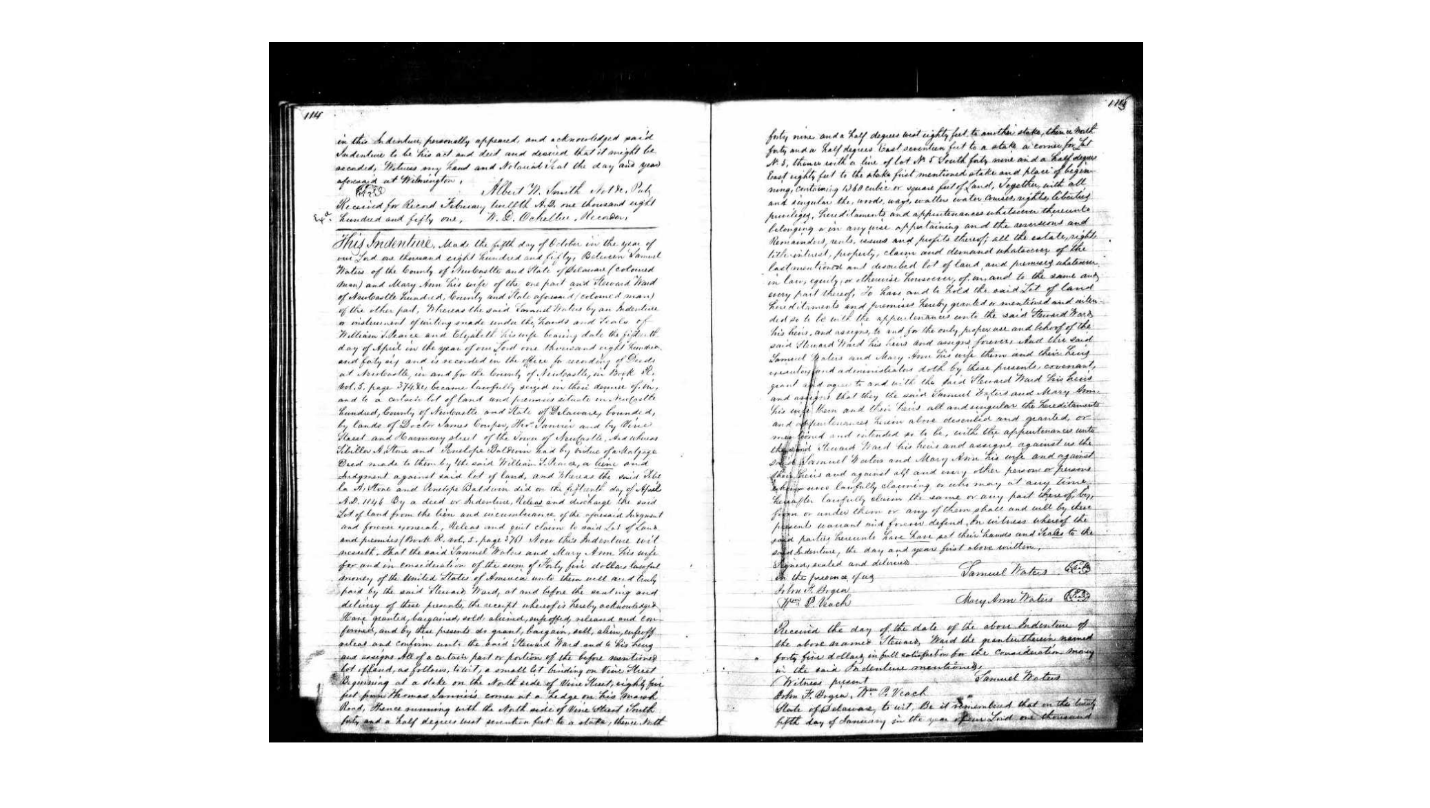 114
in this Indenture personally appeared, and acknowledged said
Indenture to be his act and deed and desired that it might be
recorded, Witness my Hand and Notarial Seal the day and year
aforesaid at Wilmington.
Albert W. Smith Not. Pub.
Received for Record February twelfth A.D. one thousand eight
hundred and fifty one,
This Indenture, Made the fifth day of October in the year of
our Lord one thousand eight hundred and fifty, Between Samuel
Waters of the County of Newcastle and State of Delaware (coloured
man) and Mary Ann his wife of the one part and Steward Ward
of Newcastle hundred, County and State aforesaid (coloured man)
of the other part, Whereas the said Samuel Waters by an Indenture
or instrument of writing made under the hands and Seals of
William and Elizabeth his wife bearing date the fifteenth
day of April in the year of our Lord one thousand eight hundred
and forty six and is recorded in the office for recording of Deeds
at Newcastle, in and for the County of Newcastle, in Book R.
Vol. 5. page 374 &c, became lawfully seized in their demesne of, in,
and to a certain lot of land and premises situate in Newcastle
hundred, County of Newcastle and State of Delaware, bounded,
by lands of Doctor James Couper, and by Vine
Street and Harmony street of the Town of Newcastle, And whereas
and Penelope Baldwin had by virtue of a Mortgage
Deed made to them by the said William, a lien and
Judgment against said lot of land, and whereas the said
and Penelope Baldwin did on the fifteenth day of April
A.D. 1846 By a deed or Indenture, Release and discharge the said
Lot of land from the lien and incumbrance of the aforesaid Judgment
and forever exonerate, Release and quit claim to said Lot of Land
and premises (Book R. vol. 5. page 376) Now this Indenture wit
nesseth, That the said Samuel Waters and Mary Ann his wife
for and in consideration of the sum of Forty five dollars lawful
money of the United States of America unto them well and truly
paid by the said Steward Ward, at and before the sealing and
delivery of these presents, the receipt whereof is hereby acknowledged
Have granted, bargained, sold, aliened, enfeoffed, released and con-
firmed, and by these presents do grant, bargain, sell, alien, enfeoff
release and confirm unto the said Steward Ward and to his heirs
and assigns All of a certain part or portion of the before mentioned
lot of land, as follows, to wit, a small lot binding on Vine Street
Beginning at a stake on the North side of Vine Street, eighty five
feet from Thomas corner at a hedge on his Marsh
Road, Thence running with the North side of Vine Street South
forty and a half degrees west seventeen feet to a stake, thence North
115
forty nine and a half degrees west eighty feet to another stake, thence North
forty and a half degrees East seventeen feet to a stake a corner for Lot
No 5, thence with a line of lot No 5 South forty nine and a half degrees
East eighty feet to the stake first mentioned stake and place of begin-
ning, containing 1360 cubic or square feet of Land, Together with all
and singular the woods, ways, waters water courses, rights, liberties
privileges, hereditaments and appurtenances whatsoever thereunto
belonging or in any wise appertaining and the reversions and
Remainders, rents, issues and profits thereof, all the estate, right
title interest, property, claim and demand whatsoever of the
last mentioned and described lot of land and premises whatsoever
in law, equity, or otherwise howsoever, of, in, and to the same and
every part thereof, To have and to hold the said Lot of land
hereditaments and premises hereby granted or mentioned and inten-
ded so to be with the appurtenances unto the said Steward Ward,
his heirs, and assigns, to and for the only proper use and behoof of the
said Steward Ward his heirs and assigns forever, And the said
Samuel Waters and Mary Ann his wife them and their heirs
executors and administrators doth by these presents, covenant,
grant and agree to and with the said Steward Ward his heirs
and assigns that they the said Samuel and Mary Ann
his wife them and their heirs all and singular the hereditaments
and appurtenances herein above described and granted, or
mentioned and intended so to be, with the appurtenances unto
the said Steward Ward his heirs and assigns, against us the
said Samuel Waters and Mary Ann his wife and against
their heirs and against all and every other person or persons
whomsoever lawfully claiming or who may at any time
hereafter lawfully claim the same or any part thereof by,
from or under them or any of them shall and will by these
presents warrant and forever defend. In witness whereof the
said parties hereunto have set their hands and Seals to the
said Indenture, the day and year first above written.
Signed, sealed and delivered
in the presence of us
Samuel Waters
Wm P. Veach
Mary Ann Waters
Received the day of the date of the above Indenture of
the above named Steward Ward the grantee therein named
forty five dollars, in full satisfaction for the consideration money
in the said Indenture mentioned,
Witness present
Samuel Waters
Wm P. Veach
State of Delaware, to wit, Be it remembered that on the twenty
fifth day of January in the year of our Lord one thousand